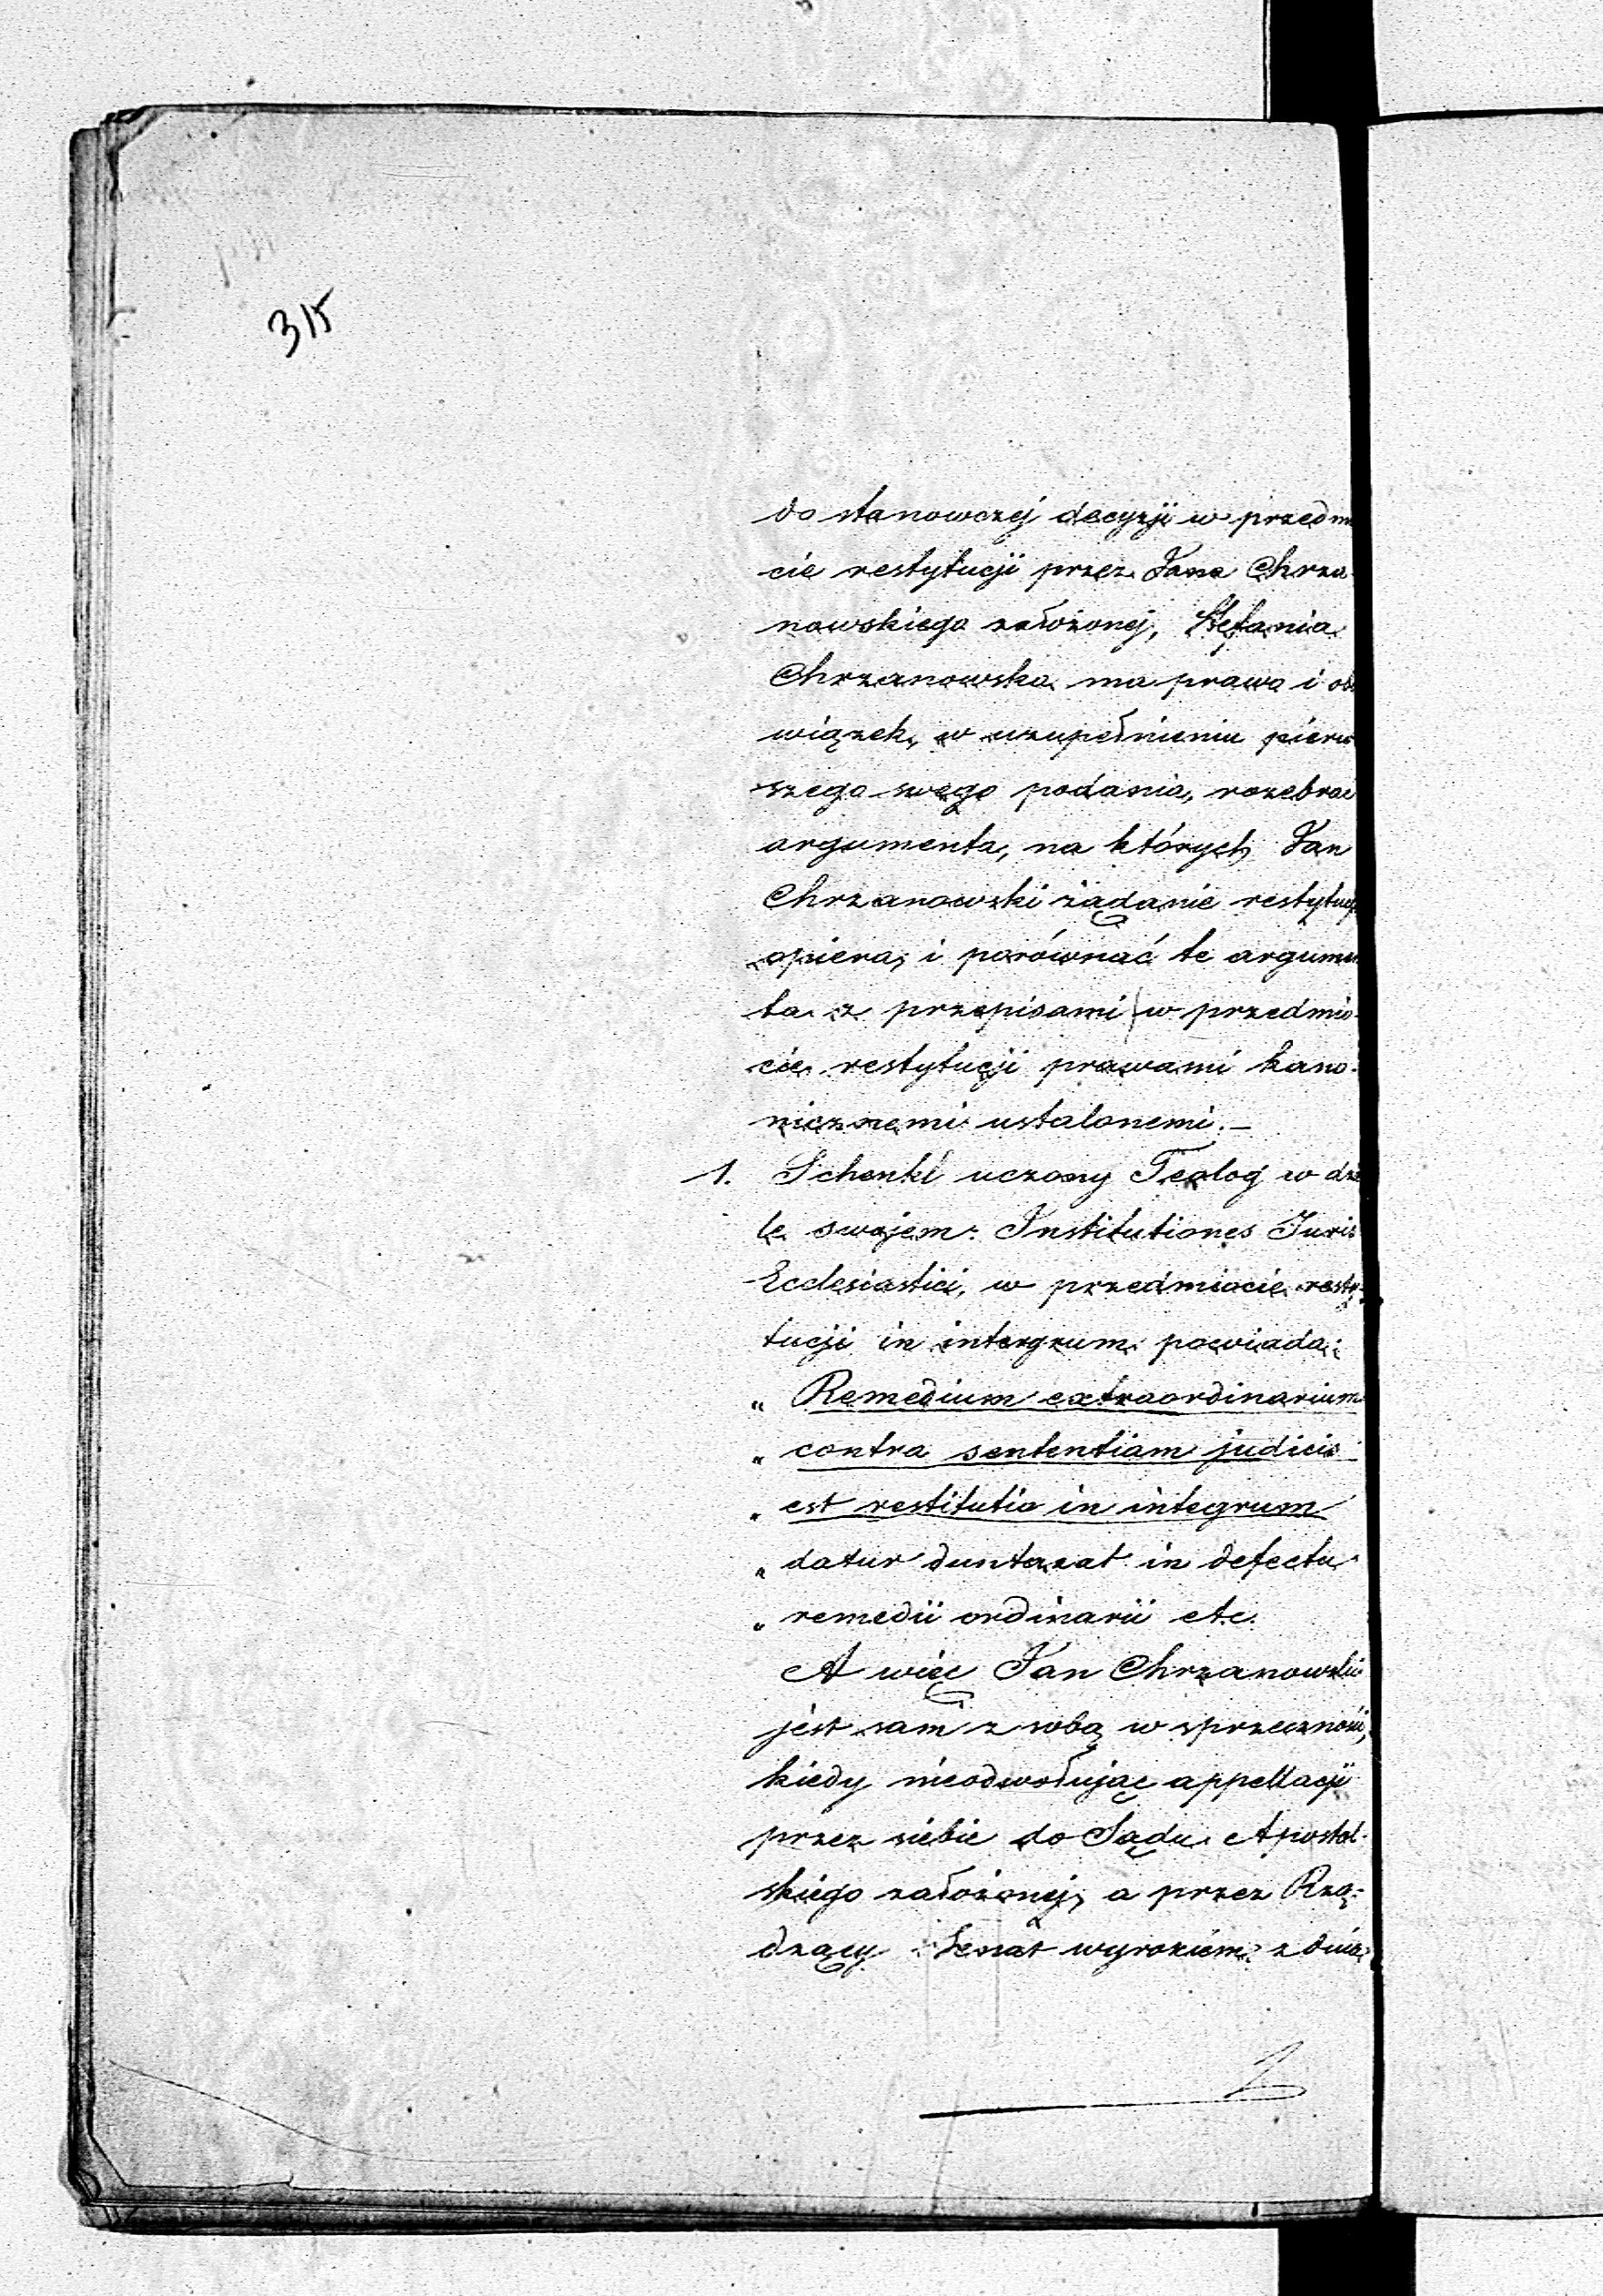 315
do stanowczej decyzji w przedm
cie restytucji przez Jana Chrza-
nowskiego założonej, Stefania
Chrzanowska ma prawo i ob
wiązek, w uzupełnieniu pierw
szego swego podania, rozebrać
argumenta, na których Jan
Chrzanowski żądanie restytucji
opiera, i porównać te argumen
ta z przepisami w przedmio-
cie restytucji prawami kano-
nicznemi ustalonemi.—
1. Schenkl uczony Teolog w dzie
le swojem: Institutiones Juris
Ecclesiastici, w przedmiocie resty-
tucji in intergrum powiada:
„ Remedium extraordinarium
„ contra sententiam judicis
„ est restitutio in integrum
„ datur duntaxat in defectu
„ remedii ordinarii etc.
A więc Jan Chrzanowski
jest sam z sobą w sprzeczności,
kiedy nieodwołując appellacji
przez siebie do Sądu Apostol-
skiego założonej, a przez Rzą-
dzący Senat wyrokiem z dnia